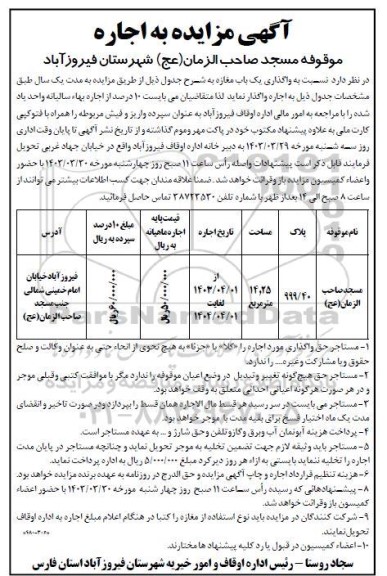 آگهی مزایده به اجاره
موقوفه مسجد صاحب الزمان(عج) شهرستان فیروزآباد
در نظر دارد نسبت به واگذاری یک باب مغازه به شرح جدول ذیل از طریق مزایده به مدت یک سال طبق
مشخصات جدول ذیل به اجاره واگذار نماید لذا متقاضیان می بایست ۱۰ درصد از اجاره بهاء سالیانه واحد یاد
شده را با مراجعه به امور مالی اداره اوقاف فیروزآباد به عنوان سپرده واریز و فیش مربوطه را همراه با فتوکپی
کارت ملی به علاوه پیشنهاد مکتوب خود در پاکت مهر و موم گذاشته و از تاریخ نشر آگهی تا پایان وقت اداری
روز سه شنبه مورخه ۱۴۰۳/۰۳/۲۹ به دبیر خانه اداره اوقاف فیروزآباد واقع در خیابان جهاد غربی تحویل
فرمایند قابل ذکر است پیشنهادات واصله رأس ساعت ۱۱ صبح روز چهارشنبه مورخه ۱۴۰۳/۰۳/۳۰ با حضور
واعضاء کمیسیون مزایده باز و قرائت خواهد شد. ضمنا علاقه مندان جهت کسب اطلاعات بیشتر می توانند از
ساعت ۸ صبح الی ۱۴ بعداز ظهر با شماره تلفن ۳۸۷۲۳۵۳۰ تماس حاصل فرمائید.
نام موقوفه پلاک مساحت تاریخ اجاره قیمت پایه اجاره ماهیانه به ریال مبلغ ۱۰ درصد سپرده به ریال آدرس
مسجد صاحب الزمان(عج) ۹۹۹/۴۰ ۱۴,۲۵ مترمربع از ۱۴۰۳/۰۴/۰۱ لغایت ۱۴۰۴/۰۴/۰۱ فیروزآباد خیابان امام خمینی شمالی جنب مسجد صاحب الزمان(عج)
۱- مستاجر حق واگذاری مورد اجاره را «کلا» یا «جزئا» به هیچ نحوی از انحاء حتی به عنوان وکالت و صلح
حقوق و یا مشارکت وغیره... را ندارد.
۲- مستاجر حق هیچ گونه تغییر و تبدیل در وضع اعیان موقوفه را ندارد مگر با موافقت کتبی وقبلی موجر
و در هر صورت هر گونه اعیانی احداثی متعلق به وقف خواهد بود.
۳- مستاجر می بایست در سر رسید هر قسط مال الاجاره همان قسط را بپردازد و در صورت تاخیر و انقضای
مدت یک ماه اختیار فسخ برای بقیه مدت با موجر خواهد بود.
۴- پرداخت هزینه آبونمان آب وبرق و گاز و تلفن وحق شارژ و ... به عهده مستاجر است.
۵- مستاجر باید وثیقه لازم جهت تضمین تخلیه به موجر تحویل نماید و چنانچه مستاجر در پایان مدت
اجاره را تخلیه ننماید بایستی به ازاء هر روز دیرکرد مبلغ ۵/۰۰۰/۰۰۰ ریال به اداره پرداخت نماید.
۶- هزینه تنظیم قرارداد اجاره و چاپ آگهی مزایده و حق الدرج در روزنامه به عهده برنده مزایده خواهد بود.
۸- پیشنهادهائی که رسیده رأس ساعت ۱۱ صبح روز چهار شنبه مورخه ۱۴۰۳/۰۳/۳۰ با حضور اعضاء
کمیسیون باز و قرائت خواهد شد.
۹- شرکت کنندگان در مزایده باید نوع استفاده از مغازه را کتبا در هنگام اعلام مبلغ اجاره به اداره اوقاف
تحویل نمایند.
۱۰- اعضاء کمیسیون در قبول یا رد کلیه پیشنهاد ها مختارند.
سجاد روستا - رئیس اداره اوقاف و امور خیریه شهرستان فیروزآباد استان فارس